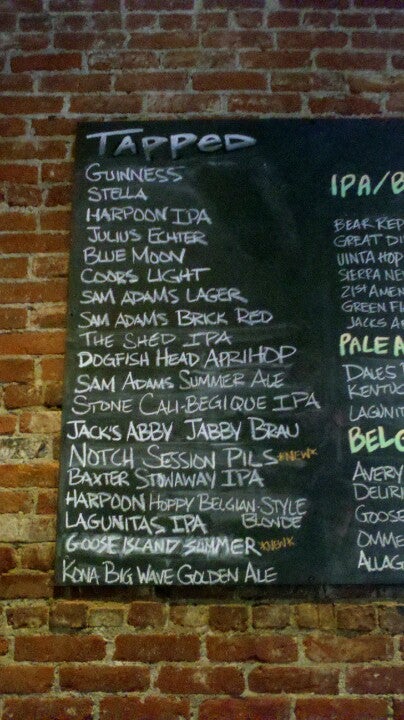 TAPPED
GUINNESS
STELLA
HARPOON IPA
JULIUS ECHTER
BLUE MOON
COORS LIGHT
SAM ADAMS LAGER
SAM ADAMS BRICK RED
THE SHED IPA
DOGFISH HEAD APRIHOP
SAM ADAMS SUMMER ALE
STONE CALI-BEGIQUE IPA
JACK'S ABBY JABBY BRAU
NOTCH SESSION PILS *NEW*
BAXTER STOWAWAY IPA
HARPOON HOPPY BELGIAN-STYLE
BLONDE
LAGUNITAS IPA
GOOSE ISLAND SUMMER *NEW*
KONA BIG WAVE GOLDEN ALE
IPA/B
BEAR REP
GREAT DI
UINTA HOP
SIERRA NE
21ST AMEN
GREEN FL
JACKS A
PALE A
DALES
KENTUC
LAGUNIT
BELG
AVERY
DELIRI
GOOSE
OMME
ALLAG